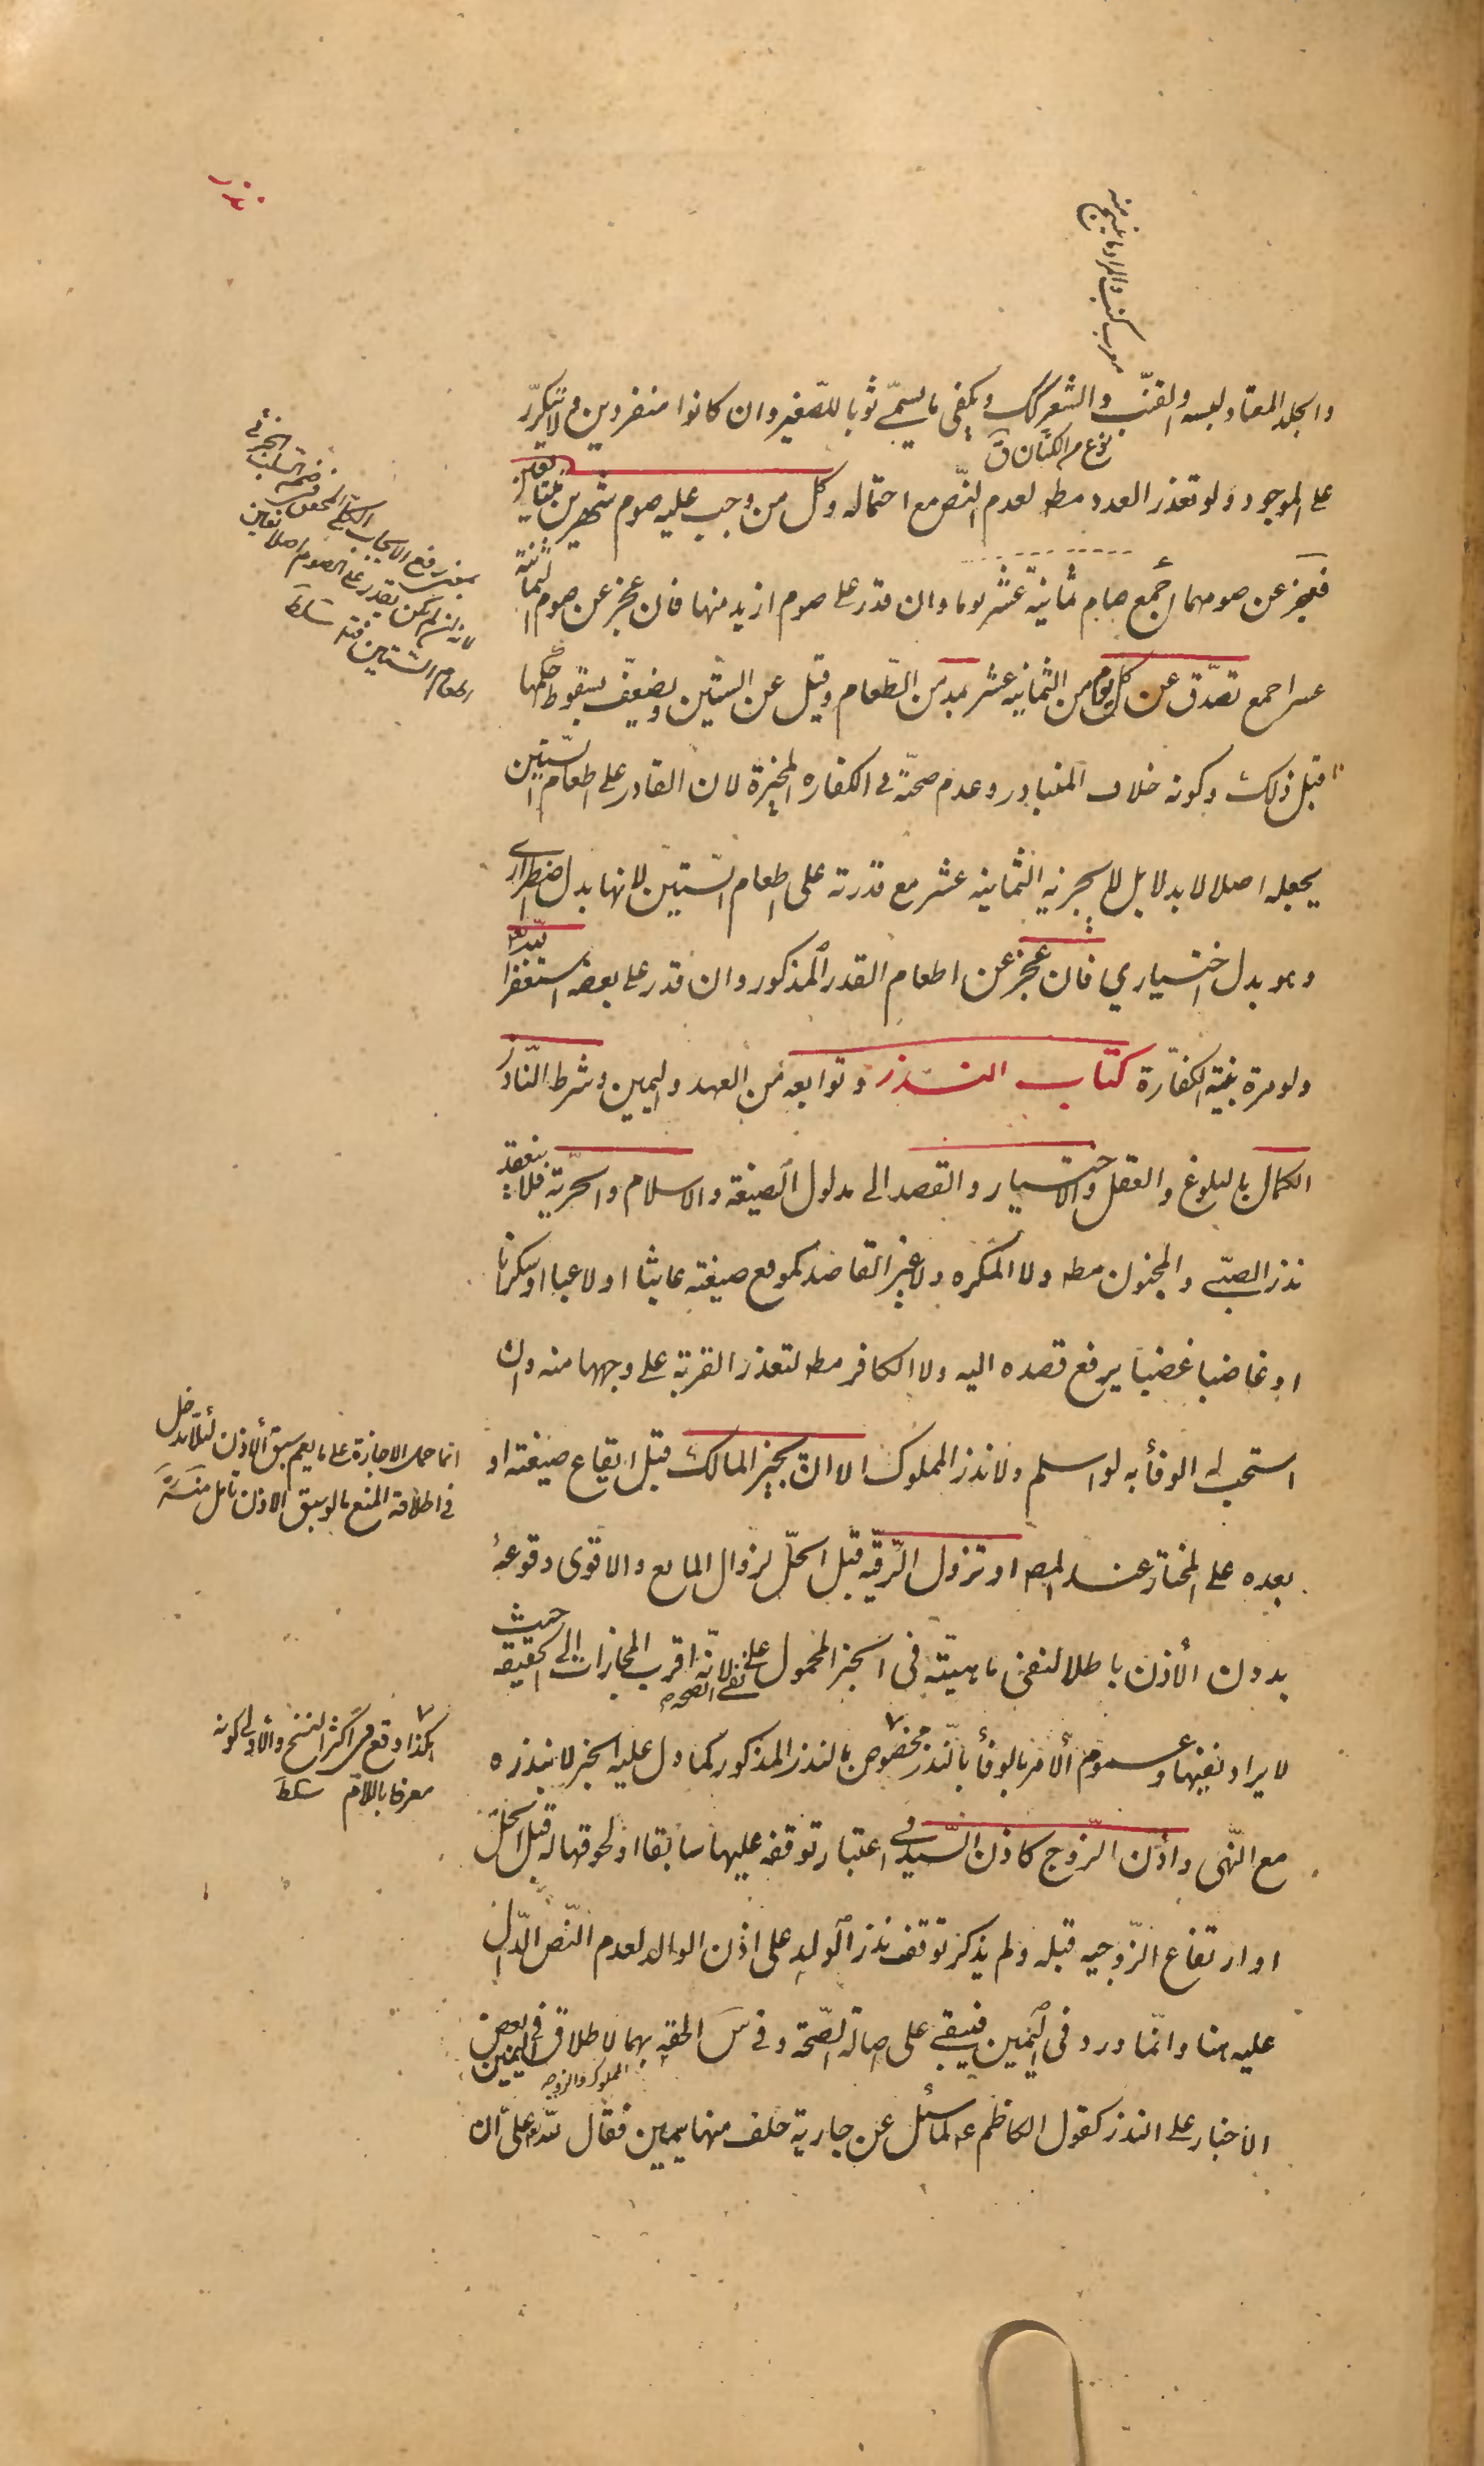 والجلد المعتاد لبسه والقنب والشعر كك ويكفي ما يسمى ثوبا للصغير وان كانوا منفردين ولا يتكرر
نوع من الكتان ق
على الموجود ولو تعذر العدد مط لعدم النص مع احتماله وكل من وجب عليه صوم شهرين متتابعين
فعجز عن صومهما اجمع صام ثمانية عشر يوما وان قدر على صوم ازيد منها فان عجز عن صوم الثمانية
عشر اجمع تصدق عن كل يوم من الثمانية عشر بمد من الطعام وقيل عن الستين ويضعف بسقوط حكمها
قبل ذلك وكونه خلاف المتبادر وعدم صحته في الكفاره المخيرة لان القادر على اطعام الستين
يجعله اصلا لا بدلا بل لا يجزيه الثمانية عشر مع قدرته على اطعام الستين لانها بدل اضطراري
وهو بدل اختياري فان عجز عن اطعام القدر المذكور وان قدر على بعضه استغفر الله
ولو مرة بنية الكفارة كتاب النذر وتوابعه من العهد واليمين وشرط الناذر
الكمال بالبلوغ والعقل والاختيار والقصد الى مدلول الصيغة والاسلام والحرية فلا ينعقد
نذر الصبي والمجنون مط ولا المكره ولا غير القاصد كموقع صيغته عابثا او لاعبا او سكرانا
او غاضبا غضبا يرفع قصده اليه ولا الكافر مط لتعذر القربة على وجهها منه وان
استحب له الوفأ به لو اسلم ولا نذر المملوك الا ان يجيز المالك قبل ايقاع صيغته او
بعده على المختار عند المص او تزول الرقيه قبل الحل لزوال المانع والاقوى وقوعه
بدون الأذن باطلا لنفي ماهيته في الخبر المحمول على نفي الصحة لانه اقرب المجازات الى الحقيقة حيث
لا يراد نفيها وعموم ألامر بالوفأ بالنذر مخصوص بالنذر المذكور كما دل عليه الخبر لا بنذره
مع النهى واذن الزوج كاذن السيد في اعتبار توقفه عليها سابقا او لحوقها له قبل الحل
او ارتفاع الزوجيه قبله ولم يذكر توقف نذر الولد على اذن الوالد لعدم النص الدال
عليه هنا وانما ورد في اليمين فيبقى على اصالة الصحة وفي س الحقه بهما لاطلاق اليمين في بعض
المملوك والزوجه
الاخبار على النذر كقول الكاظم ع لما سئل عن جارية حلف منها بيمين فقال لله على ان
انما حمل الاجازة على ما يعم سبق ألاذن لئلا يدخل
في اطلاقه المنع ما لو سبق الاذن تأمل منه
هكذا وقع في اكثر النسخ والاولى كونه
معرفا باللام